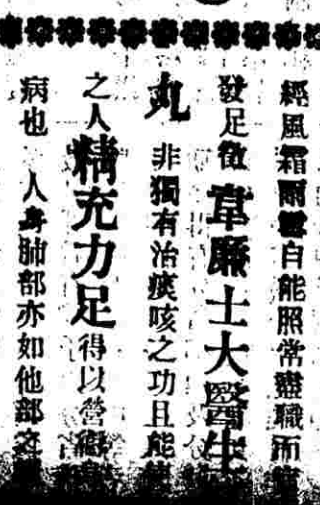 經風霜雨雪自能照常盡職而
發足徵韋廉士大醫生
丸非獨有治痰咳之功且能使
之人精充力足得以營
病也 人身肺部亦如他部之